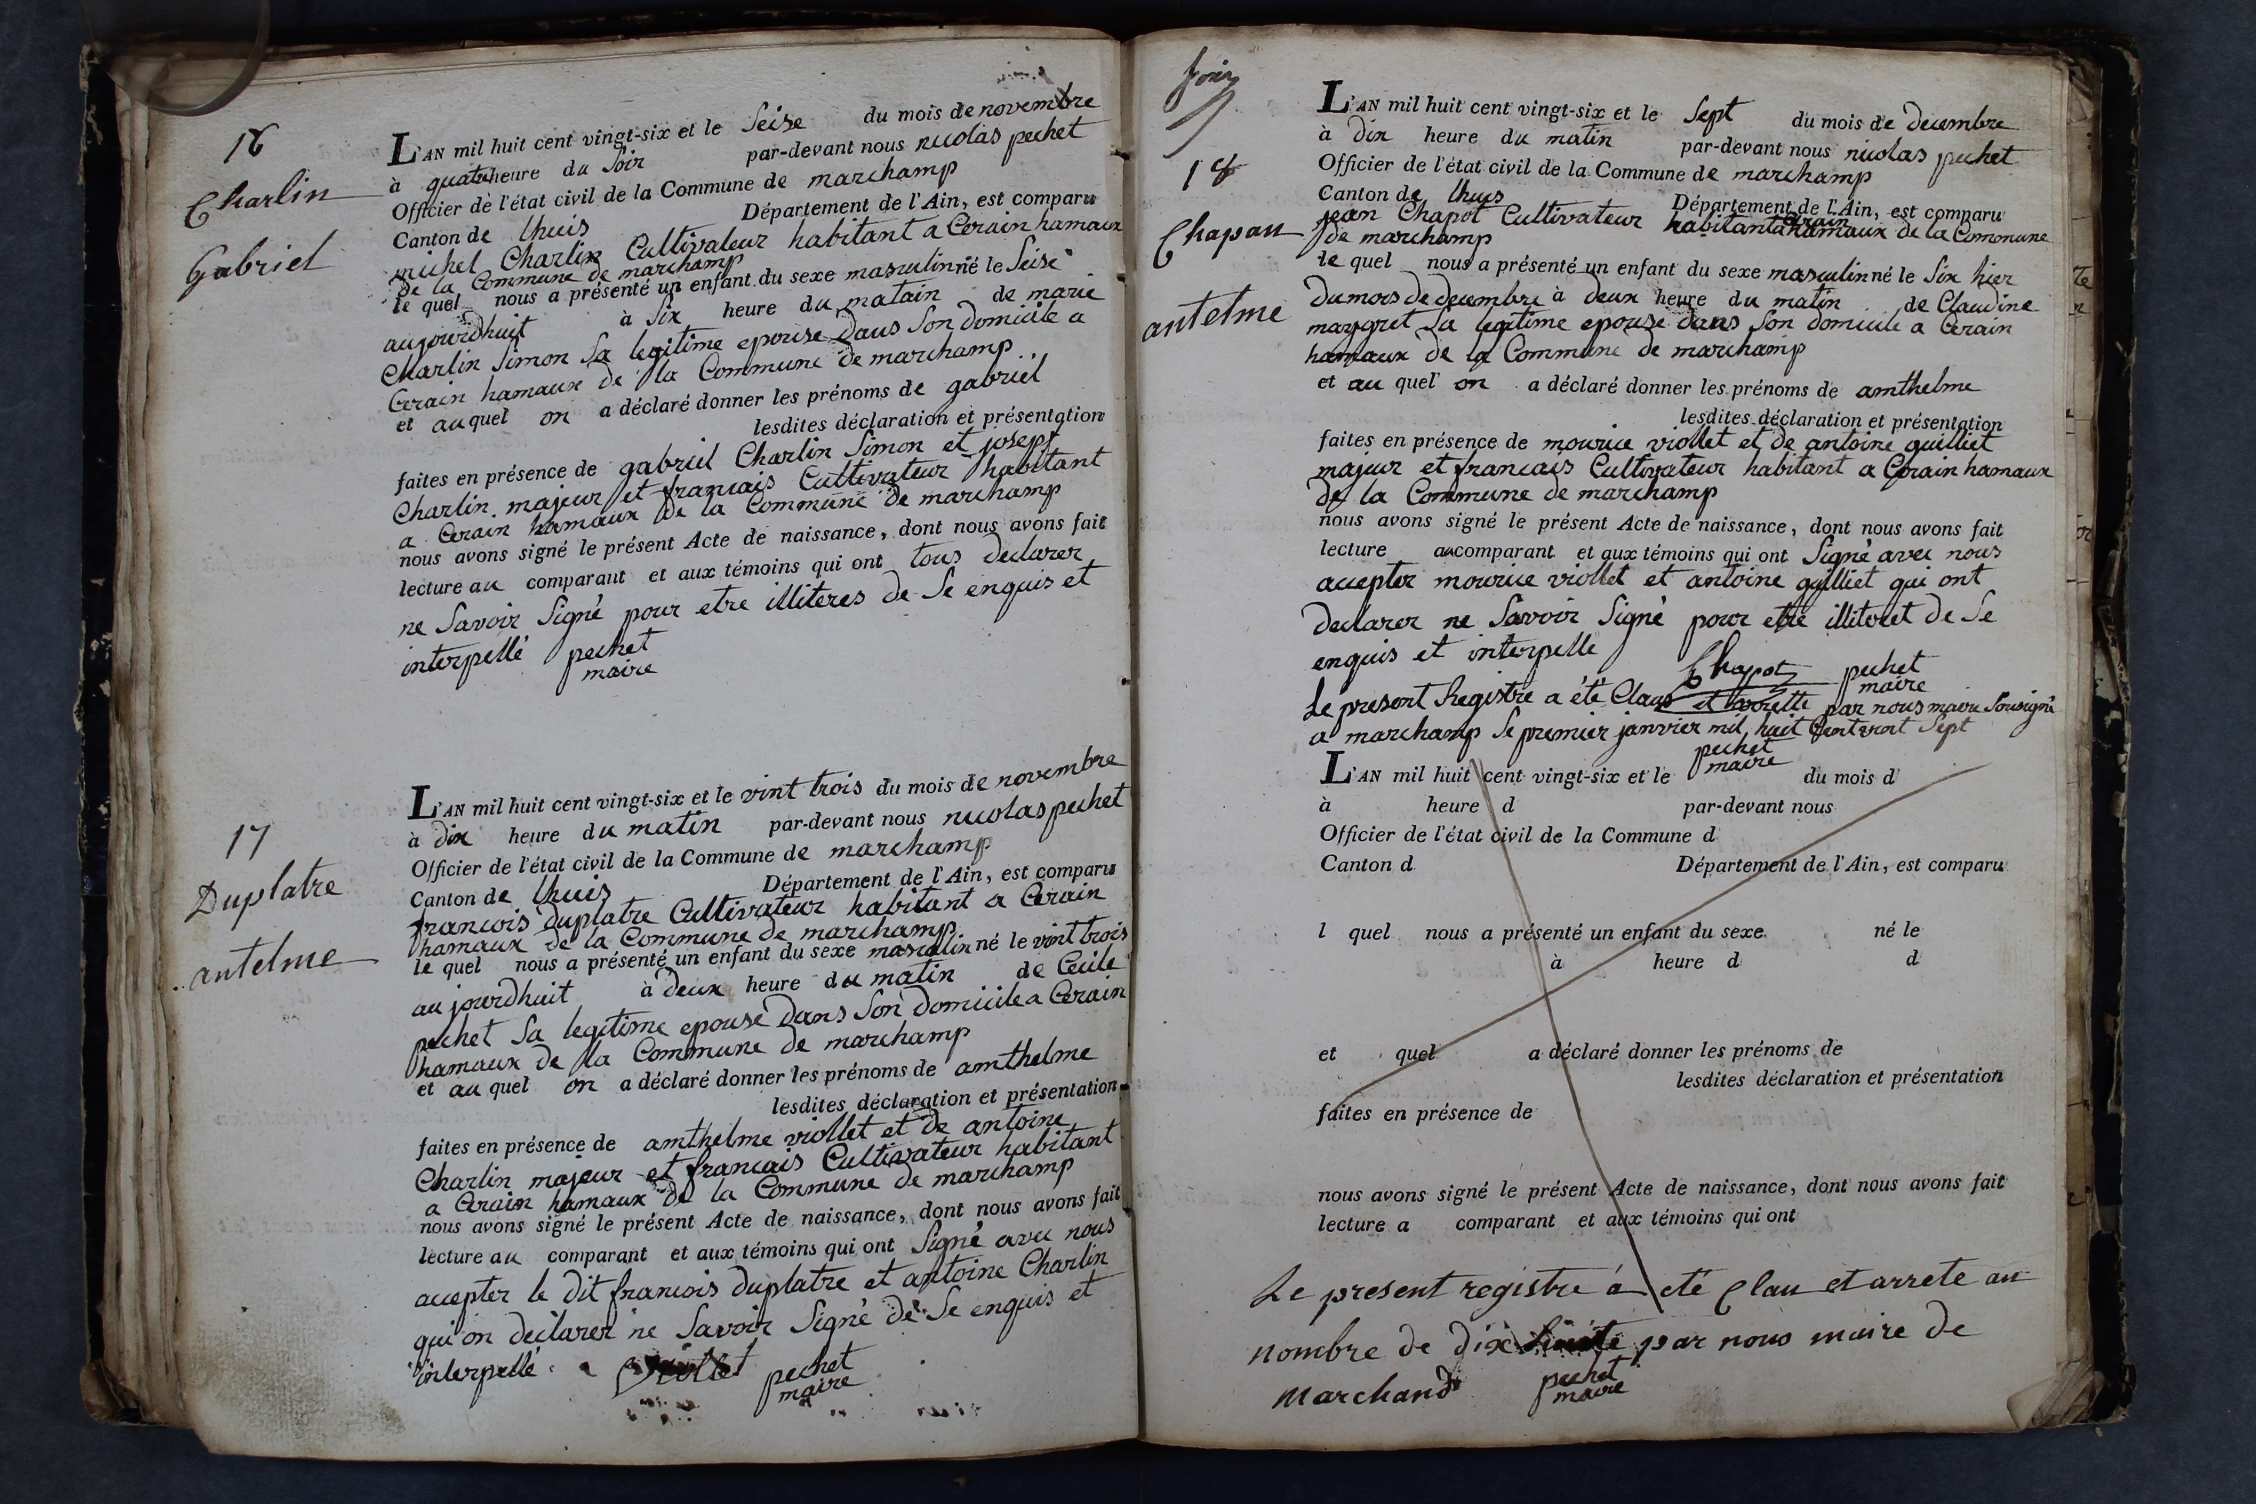 16
Charlin
Gabriel
L'AN mil huit cent vingt-six et le Seise du mois de novembre
à quatre heure du Soir par-devant nous nicolas pechet
Officier de l'état civil de la Commune de marchamp
Canton de lhuis Département de l'Ain, est comparu
michel Charlin Cultivateur habitant a Cerain hamaux
de la Commune de marchamp
le quel nous a présenté un enfant du sexe masculin né le Seise
aujourdhuit à Six heure du matain de marie
Charlin Simon Sa legitime epouse dans Son domicile a
Cerain hamaux de la Commune de marchamp
et au quel on a déclaré donner les prénoms de gabriel
lesdites déclaration et présentation
faites en présence de gabriel Charlin Simon et josept
Charlin majeur et francais Cultivateur habitant
a Cerain hamaux de la Commune de marchamp
nous avons signé le présent Acte de naissance, dont nous avons fait
lecture au comparant et aux témoins qui ont tous declarer
ne Savoir Signé pour etre illiteres de Se enquis et
interpellé pechet
maire
17
Duplatre
antelme
L'AN mil huit cent vingt-six et le vint trois du mois de novembre
à dix heure du matin par-devant nous nicolas pechet
Officier de l'état civil de la Commune de marchamp
Canton de lhuis Département de l'Ain, est comparu
francois duplatre Cultivateur habitant a Cerain
hamaux de la Commune de marchamp
le quel nous a présenté un enfant du sexe masculin né le vint trois
au jourdhuit à deux heure du matin de Cecile
pechet Sa legitime epouse dans Son domicile a Cerain
hamaux de la Commune de marchamp
et au quel on a déclaré donner les prénoms de amthelme
lesdites déclaration et présentation
faites en présence de amthelme viollet et de antoine
Charlin majeur et francais Cultivateur habitant
a Cerain hamaux de la Commune de marchamp
nous avons signé le présent Acte de naissance, dont nous avons fait
lecture au comparant et aux témoins qui ont Signé avec nous
accepter le dit francois duplatre et antoine Charlin
qui on déclarer ne Savoir Signé de Se enquis et
interpellé Viollet pechet
maire
18
Chapau
antelme
L'AN mil huit cent vingt-six et le Sept du mois de decembre
à dix heure du matin par-devant nous nicolas pechet
Officier de l'état civil de la Commune de marchamp
Canton de lhuis Département de l'Ain, est comparu
jean Chapot Cultivateur habitant a Cerain hamaux de la Commune
de marchamp
le quel nous a présenté un enfant du sexe masculin né le Six hier
du mois de decembre à deux heure du matin de Claudine
maygret Sa legitime epouse dans Son domicile a Cerain
hamaux de la Commune de marchamp
et au quel on a déclaré donner les prénoms de amthelme
lesdites déclaration et présentation
faites en présence de mourice viollet et de antoine guilliet
majeur et francais Cultivateur habitant a Cerain hamaux
de la Commune de marchamp
nous avons signé le présent Acte de naissance, dont nous avons fait
lecture au comparant et aux témoins qui ont Signé avec nous
accepter mourice viollet et antoine guilliet qui ont
declarer ne Savoir Signé pour etre illiteret de Se
enquis et interpelle
Chapot pechet
maire
Le present Registre a été Claus et arrette par nous maire Sousigné
a marchamp le premier janvier mil huit Cent vint Sept
pechet
maire
L'AN mil huit cent vingt-six et le du mois d
à heure d par-devant nous
Officier de l'état civil de la Commune d
Canton d Département de l'Ain, est comparu
l quel nous a présenté un enfant du sexe né le
à heure d d
et quel a déclaré donner les prénoms de
lesdites déclaration et présentation
faites en présence de
nous avons signé le présent Acte de naissance, dont nous avons fait
lecture a comparant et aux témoins qui ont
Le present registre á eté Clau et arrete au
nombre de dix huite par nous maire de
marchand pechet
maire